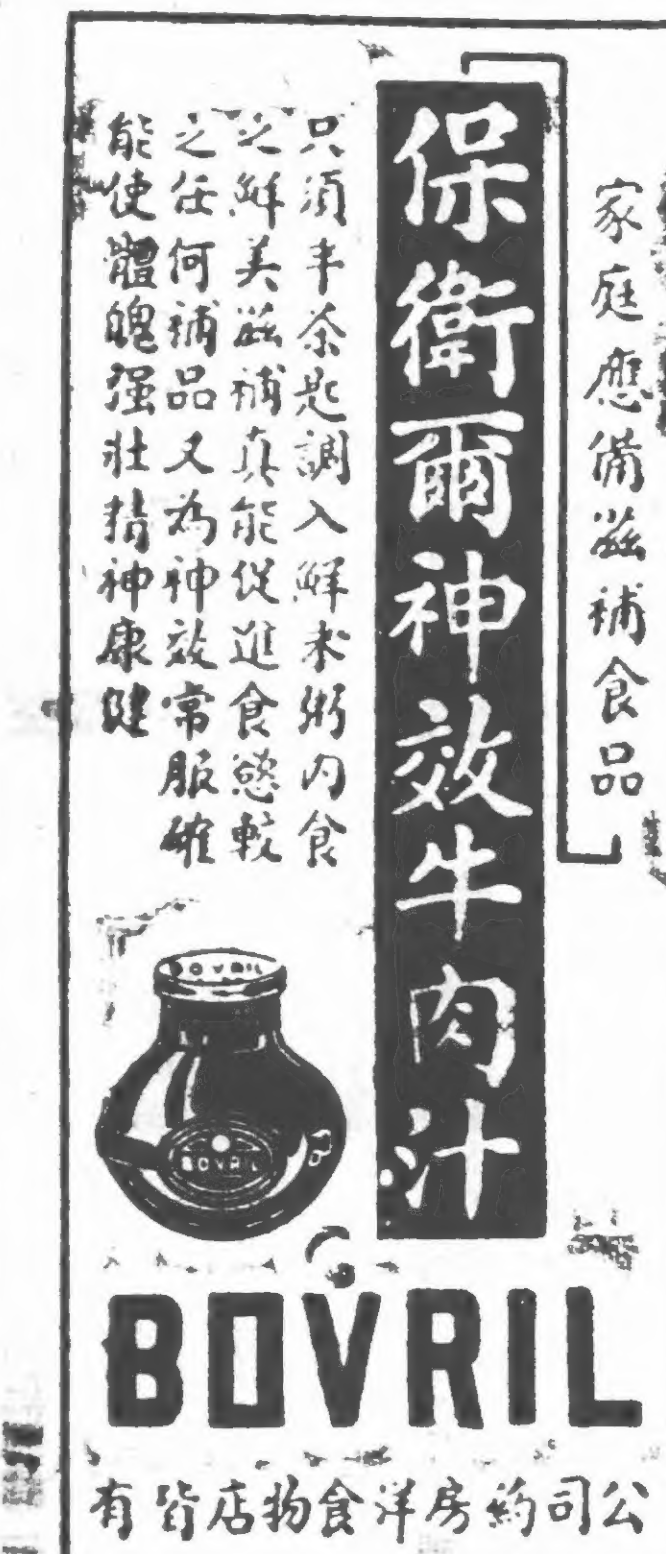 家庭應備滋補食品
保衛爾神效牛肉汁
只須半茶匙調入鮮米粥内食
之鮮美滋補真能促進食慾較
之任何補品又為神效常服確
能使體魄强壯精神康健
BOVRIL
BOVRIL
BOVRIL
公司葯房洋食物店皆有